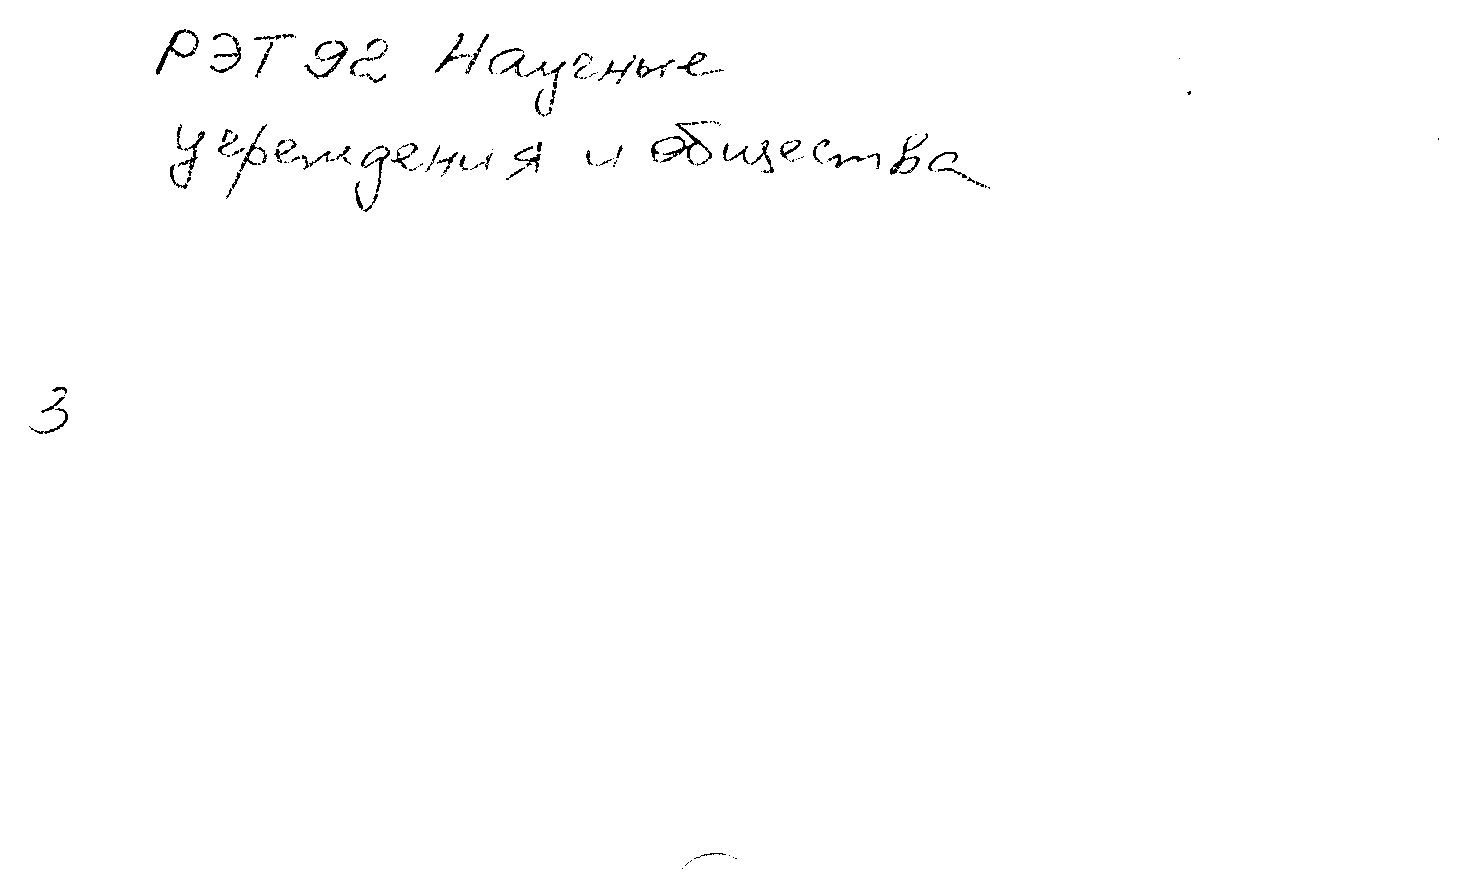 РЭТ 92 Научные
учреждения и общества
3